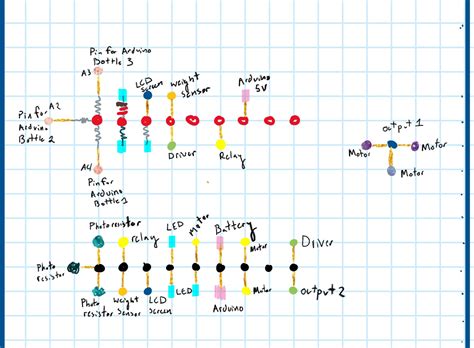 Pin for Arduino
Bottle 3
A3
LCD
screen
weight
sensor
Arduino
5V
A2
Pin for
Arduino
Bottle 2
Driver
Relay
A4
Pin for
Arduino
Bottle 1
output 1
Motor
Motor
Motor
Photo resistor
relay
LED
Motor
Battery
Motor
Driver
Photo
resistor
Photo
resistor
weight
Sensor
LCD
Screen
LED
Arduino
Motor
output 2